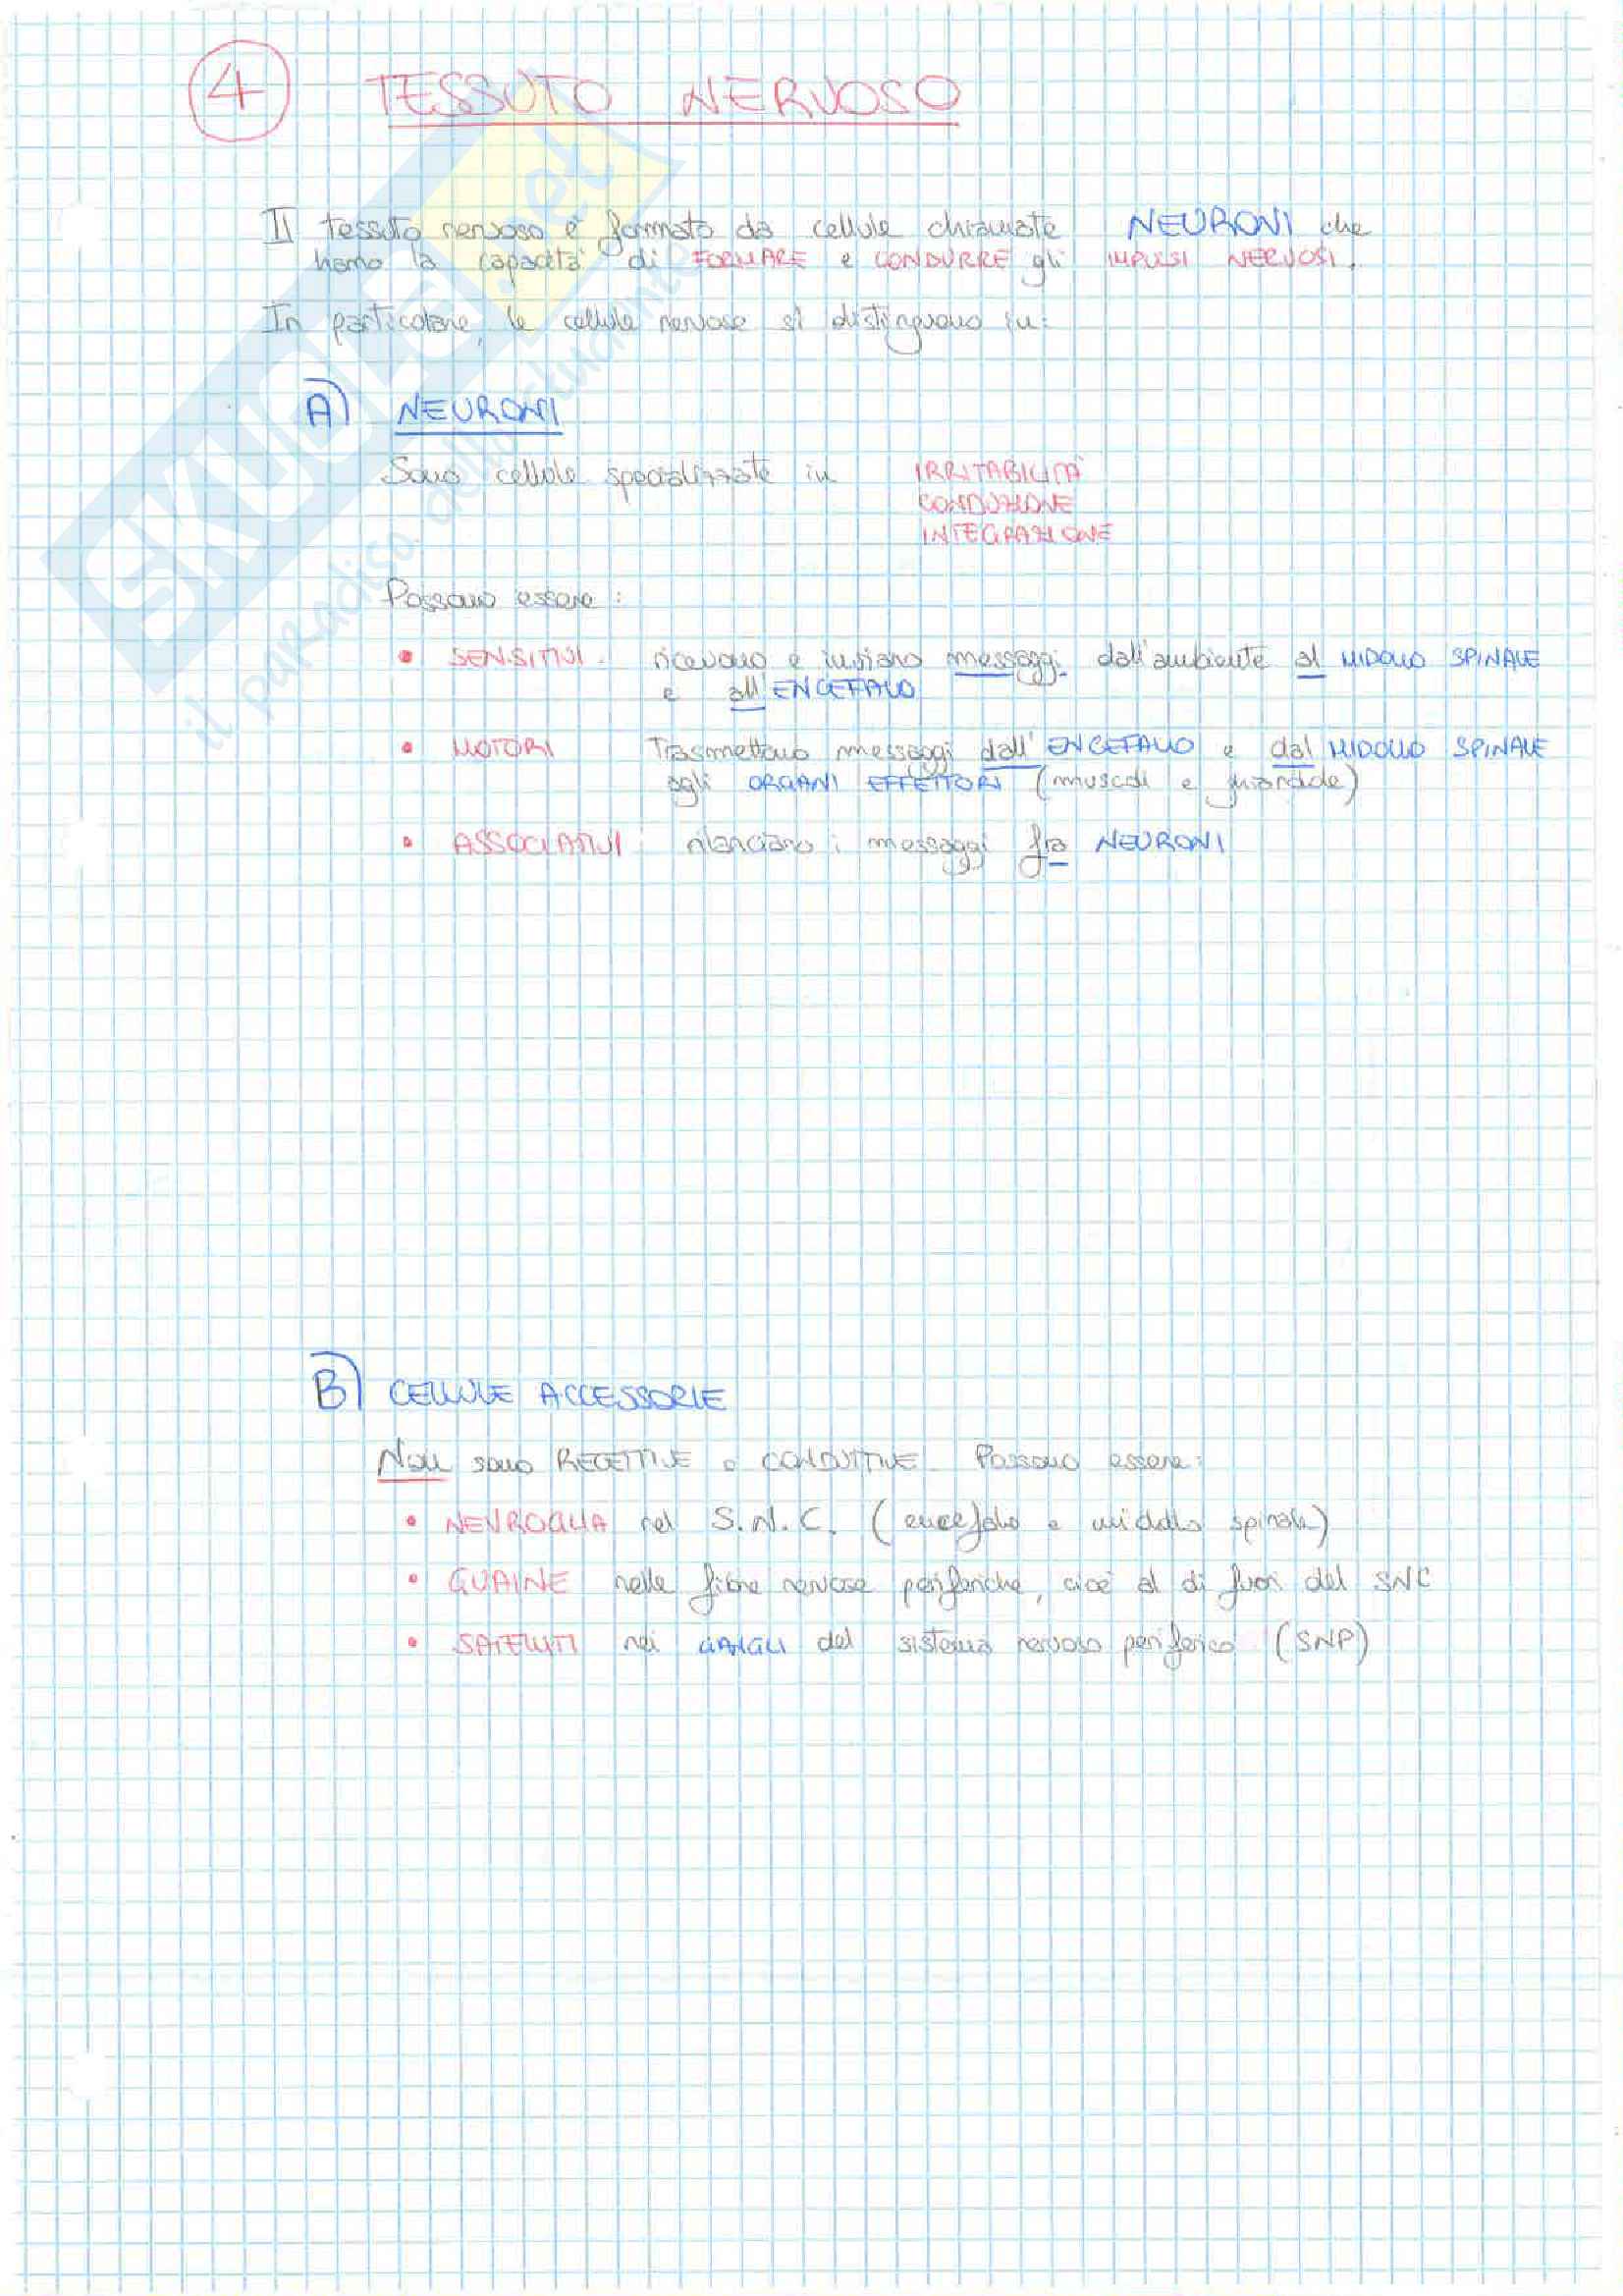 4 TESSUTO NERVOSO
Il tessuto nervoso è formato da cellule chiamate NEURONI che
hanno la capacità di FORMARE e CONDURRE gli IMPULSI NERVOSI.
In particolare, le cellule nervose si distinguono in:
A) NEURONI
Sono cellule specializzate in IRRITABILITÀ
CONDUZIONE
INTEGRAZIONE
Possono essere:
• SENSITIVI: ricevono e inviano messaggi dall'ambiente al MIDOLLO SPINALE
e all'ENCEFALO
• MOTORI Trasmettono messaggi dall'ENCEFALO e dal MIDOLLO SPINALE
agli ORGANI EFFETTORI (muscoli e ghiandole)
• ASSOCIATIVI: rilanciano i messaggi fra NEURONI
B) CELLULE ACCESSORIE
Non sono RECETTIVE o CONDUTTIVE. Possono essere:
• NEVROGLIA nel S.N.C. (encefalo e midollo spinale)
• GUAINE nelle fibre nervose periferiche, cioè al di fuori del SNC
• SATELLITI nei GANGLI del sistema nervoso periferico (SNP)
SKUOLA.net
il paradiso dello studente